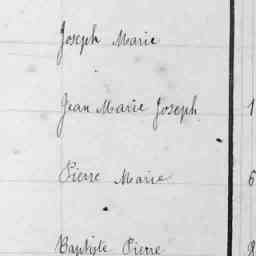 Joseph Marie
Jean Marie Joseph 1
Pierre Marie 6
Baptiste Pierre